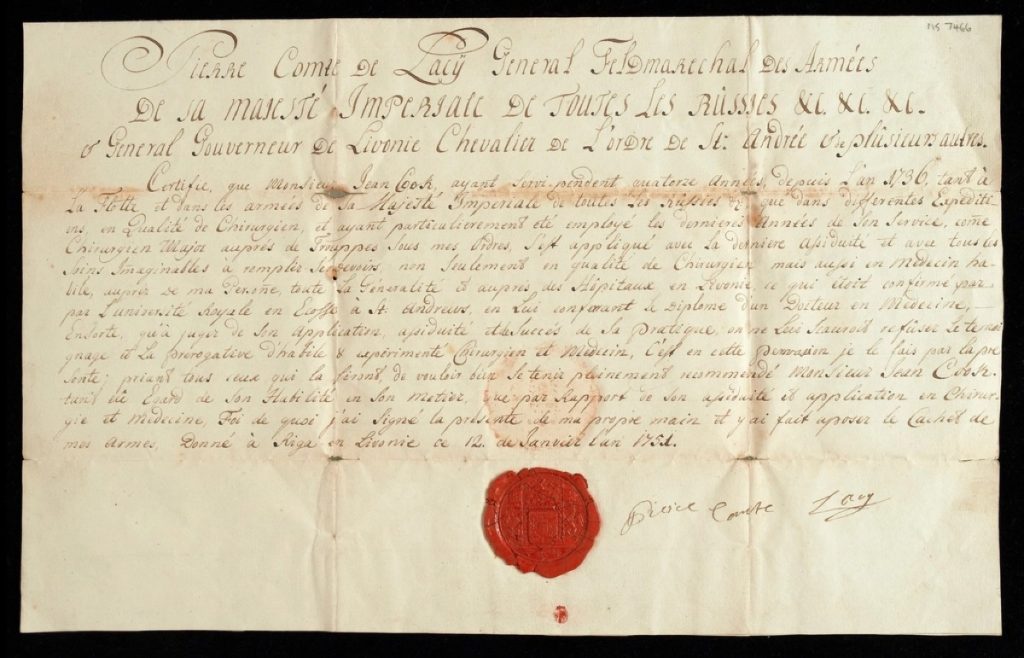 MS 7466
Pierre Comte De Lacÿ General Feldmarechal Des Armées
De sa Majesté Imperiale De toutes Les Rüssies &c. &c. &c.
& General Gouverneur de Livonie Chevalier de L'ordre de St. Andrée & de plüsieurs autres.
Certifie, que Monsieur Jean Cook, ayant servi pendent quatorze Années, depuis L'an 1736, tant à
La Flotte et dans les armées de Sa Majesté Imperiale de toutes Les Rüssies &c. que dans differentes Expediti-
ons, en Qualité de Chirurgien, et ayant particulierement eté employé les dernieres Années de son Service, come
Chirurgien Major auprès de Trouppes sous mes Ordres, S'est appliqué avec la derniere assiduité et avec tous les
soins Imaginables à remplir Ses devoirs, non seulement en qualité de Chirurgien mais aussi en Medecin ha-
bile, auprès de ma Persone, toute La Generalité et aupres des Hôpitaux en Livonie, ce qui étoit confirmé par
par L'université Royale en Ecosse à St. Andrews, en Lui conferant le Diplome d'un Docteur en Medecine,
Ensorte, qu'à juger de Son Application, assiduité et du Succés de Sa Pratique, on ne Lui Scauroit refüser Le temoi
gnage et La prerogative d'habile & experimenté Chirurgien et Medecin, C'est en cette persuasion je le fais par la pre
sente; priant tous ceux qui la de vouloir bien Se tenir pleinement recommendé Monsieur Jean Cook.
tant en Egard de Son Habilité en Son metier, que par Rapport de Son assiduité et application en Chirur-
gie et Medecine, Foi de quoi j'ai Signé la presente de ma propre main et y ai fait aposer le Cachet de
mes Armes, Donné à Riga en Livonie ce 12. de Janvier L'an 1751.
Pierre Comte Lacy